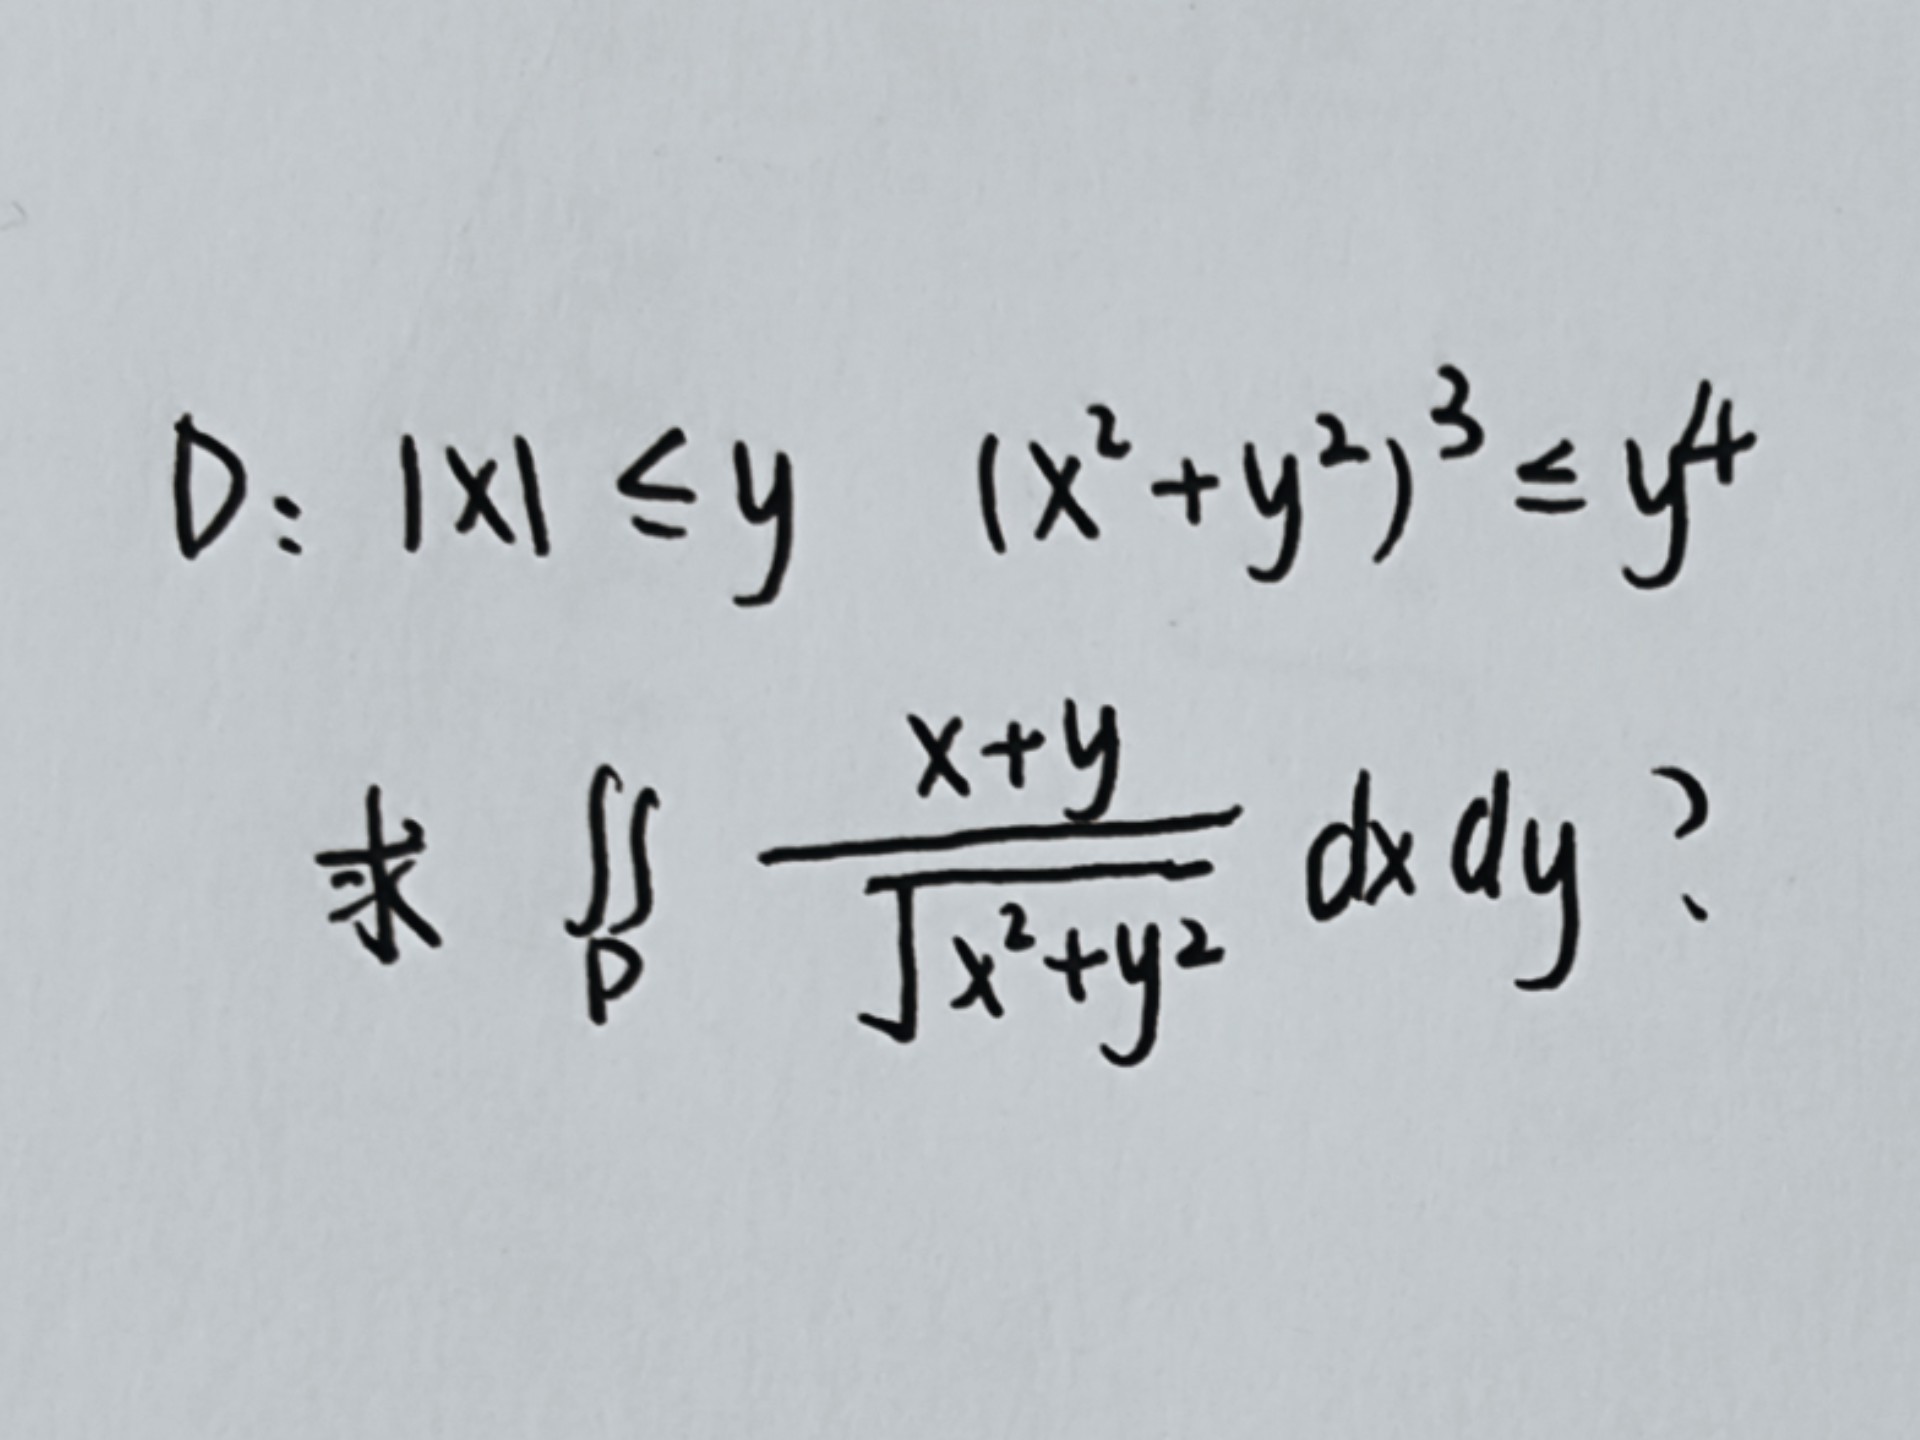 D: |x| ≤ y (x²+y²)³ ≤ y⁴
求 ∬_D (x+y)/√(x²+y²) dx dy ?